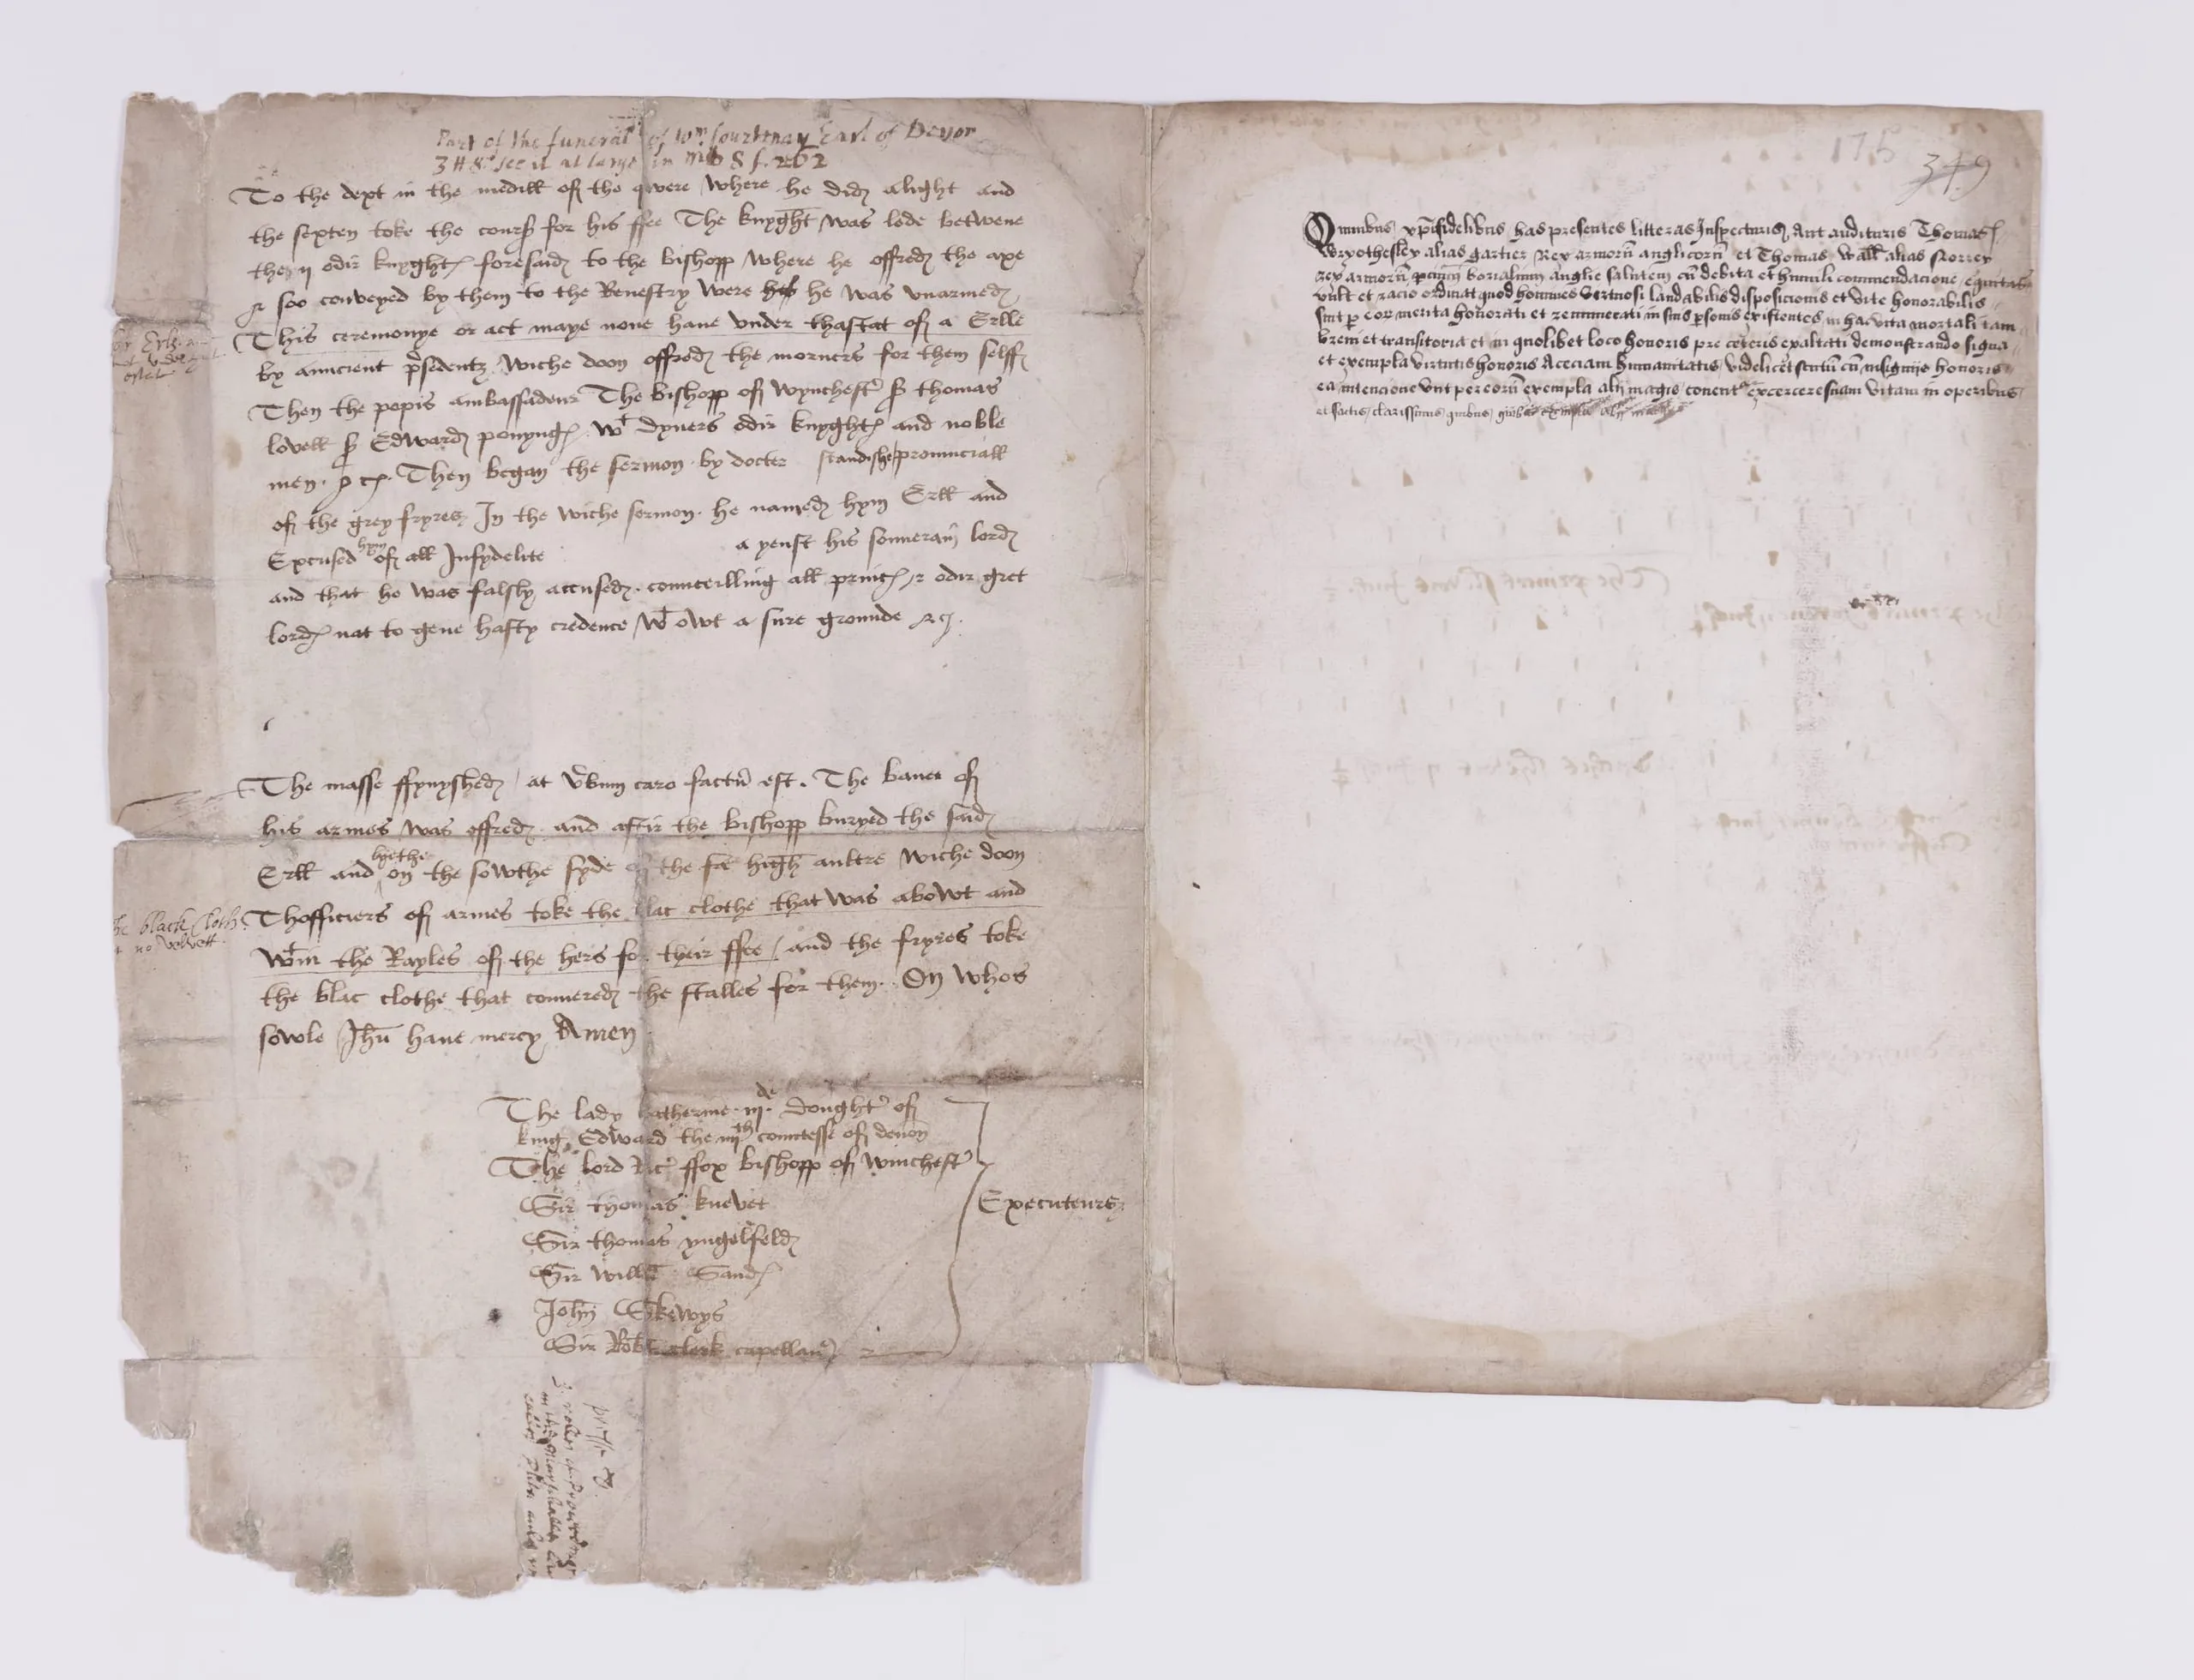 Part of the funeral of Wm Courtenay Earl of Devon
3 H 8. see it at large in MS S f. 262
To the dext in the medill off the qwere where he did alight and
the sexten toke the cours for his ffee The knyght was lede betwene
they ij odir knyght foresaid to the bishopp where he offred the axe
& soo conveyed by them to the Revestry were he was unarmed
This ceremonye or act maye none have under thastat off a Erlle
by auncient presedentz wiche doon offred the morners for them selff
Then the popis ambassadeur The bishopp off Wynchestr Sr thomas
lovell Sr Edward ponyng wt dyuers odir knyght and noble
men. Then began the sermon by docter standishe prouinciall
off the grey fryres In the wiche sermon he named hym Erll and
Excused hym off all Infydelite ayenst his souuerain lord
and that he was falsly accused. counceilling all princ & odir gret
lord nat to geue hasty credence wt owt a sure grounde &c.
The masse ffynyshed / at vbum caro factu est. The baner off
his armes was offred and aftir the bishopp buryed the said
Erll and on the sowthe syde off the high aultre wiche doon
the black cloth
no velvett
Thofficiers off armes toke the blac clothe that was abowt and
wtin the Rayles off the hers for their ffee / and the fryres toke
the blac clothe that couuered the stalles for them. On whos
sowle Jhu haue mercy Amen
The lady katherine iijde doughtr off
king Edward the iiijth countesse off deuon
The lord Ric ffox bishopp off winchestr
Sir thomas knevet
Executeurs
Sir thomas yngelfeld
Sir Willm Sand
John Skewys
Sir Robt clerk capellan
175
349
Omnibus xpifidelibus has presentes litteras Inspecturis Aut audituris Thomas
Wryothesley alias gartier Rex armoru anglicoru et Thomas wall alias Norrey
rex armoru parcium borialium anglie salutem cu debita et humili commendacione equitas
vult et racio ordinat quod homines vertuosi laudabilis disposicionis et vite honorabilis
sint p eor merita honorati et remunerati in suis psonis existentes in hac vita mortali tam
breui et transitoria et in quolibet loco honoris pre ceteris exaltati demonstrando signa
et exempla virtutis honoris Aceciam humanitatis videlicet scutu cu insignijs honoris
ea intencione vnt per eoru exempla alij magis conent excercere suam vitam in operibus
et factis clarissimis quibus